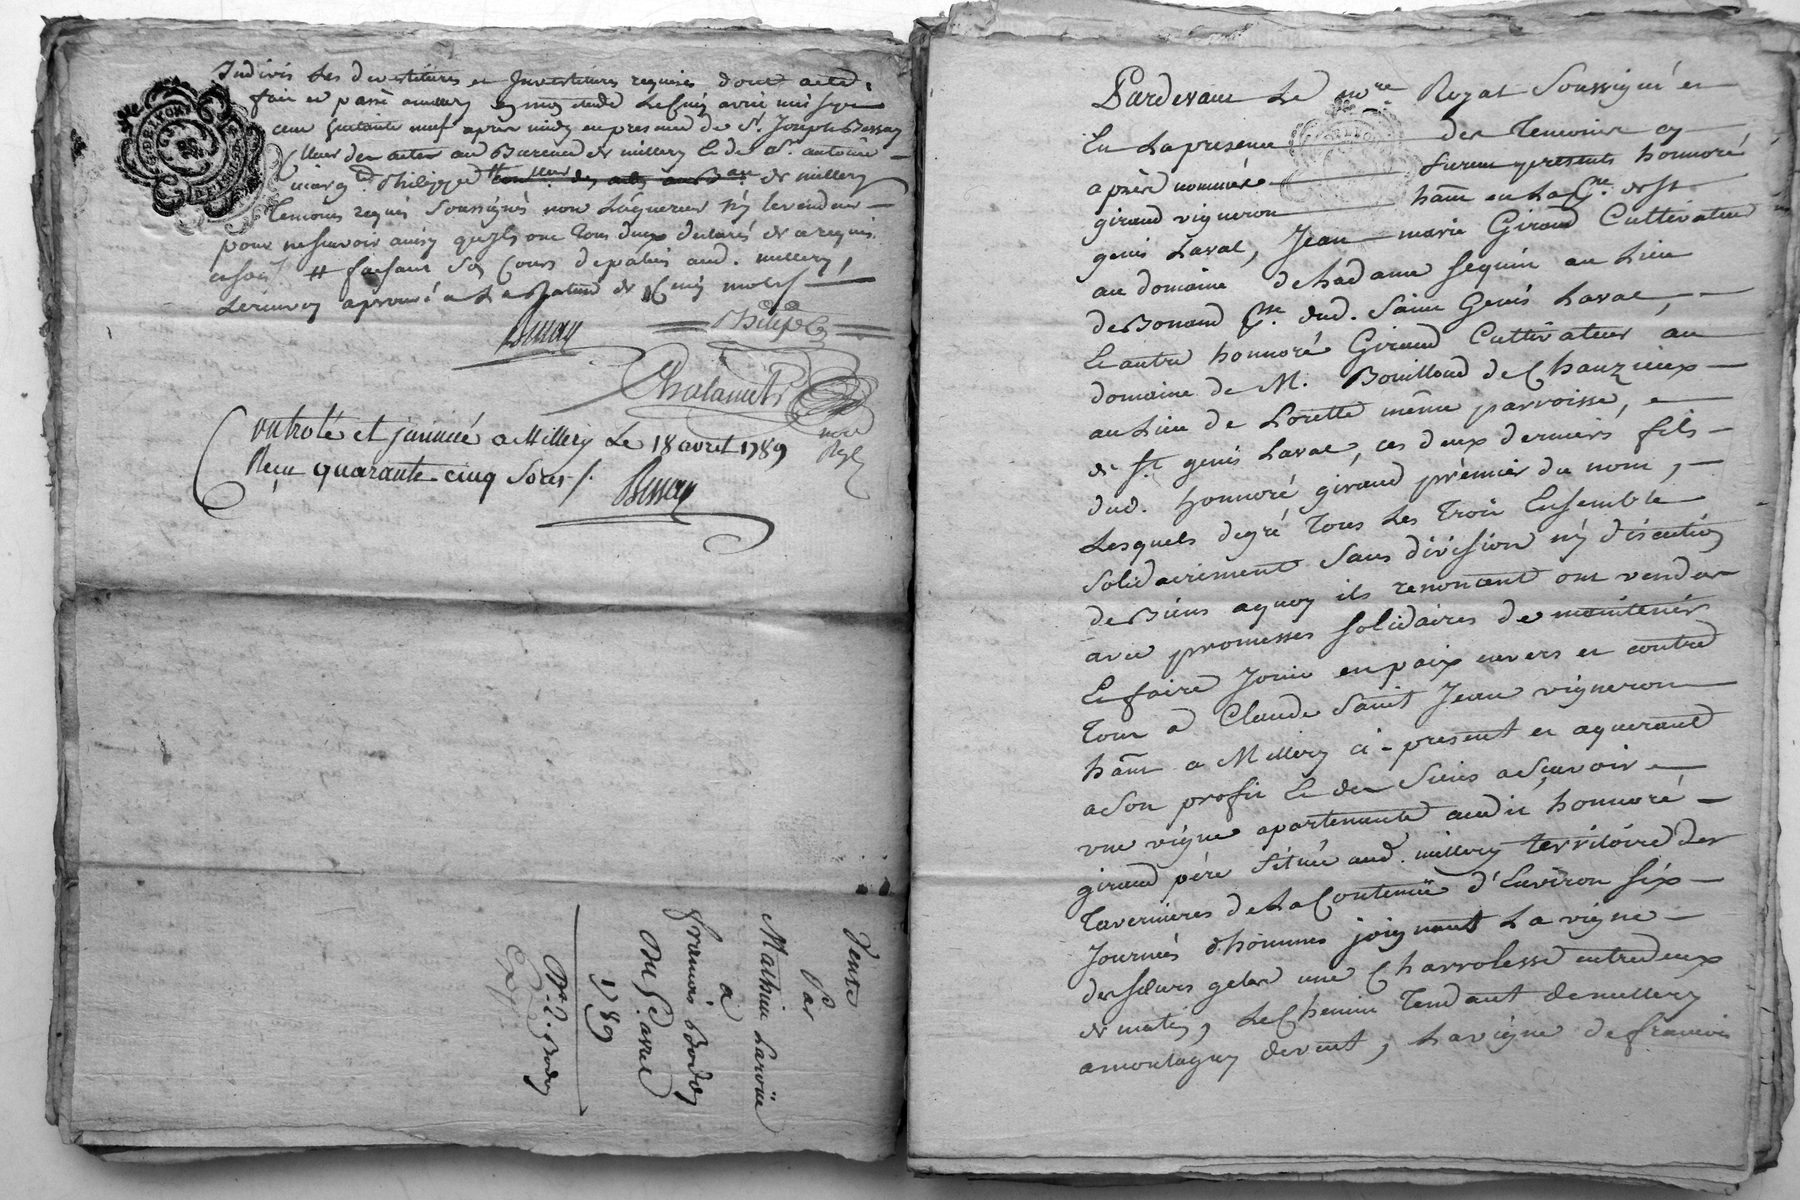 Indivis Les devestitures et Investitures requises dont acte
fait et passé a millery en mon etude Le cinq avril mil sept
cent huitante neuf après midy en presence de Sr. Joseph Bessay
des actes au Bureau de millery & de Sr. antoine
Philippe de millery
Temoins requis Soussignés non L'aquereur ny le vendeur
pour ne scavoir ainsy qu'ils ont Tous deux declarés de ce requis
faisant Sa Cour de palais aud. millery
Le renvoy aprouvé & La Rature de Cinq mots
Bessay
Philippe
Chalamel
nore
Royal
Controlé et insinué a Millery Le 18 avril 1789
Reçu quarante cinq Sols
Bessay
Vente
Par
Mathieu Laroüe
a
francois Bodoy
du
1789
Pardevant Le nore Royal Soussigné et
En La presence des Temoins cy
après nommés furent presents honnoré
giraud vigneron hant en La pse. de st
genis Laval, Jean marie Giraud Cultivateur
au domaine de hadame seguin au Lieu
de Bonand pse. dud. Saint Genis Laval,
& autre honnoré Giraud Cultivateur au
domaine de M. Bouilloud de Chanzieux
au Lieu de Lorette même parroisse,
de st. genis Laval, ces deux derniers fils
dud. honnoré giraud prèmier du nom,
Lesquels de gré Tous Les Trois Ensemble
solidairement Sans division ny discution
de Biens a quoy ils renoncent ont vendu
avec promesses solidaires de maintenir
& faire Jouir en paix envers et contre
Tous a Claude Saint Jean vigneron
hant a Millery ci-present et aquerant
a Son profit & des Siens a Scavoir
une vigne apartenante audit honnoré
giraud père Située aud. millery territoire des
Tavernieres de La Contenüe d'Environ six
Journés d'hommes joignant La vigne
des sœurs gelas une Charrolesse entredeux
de matin, Le Chemin Tendant de millery
a montagny devent, La vigne de francois